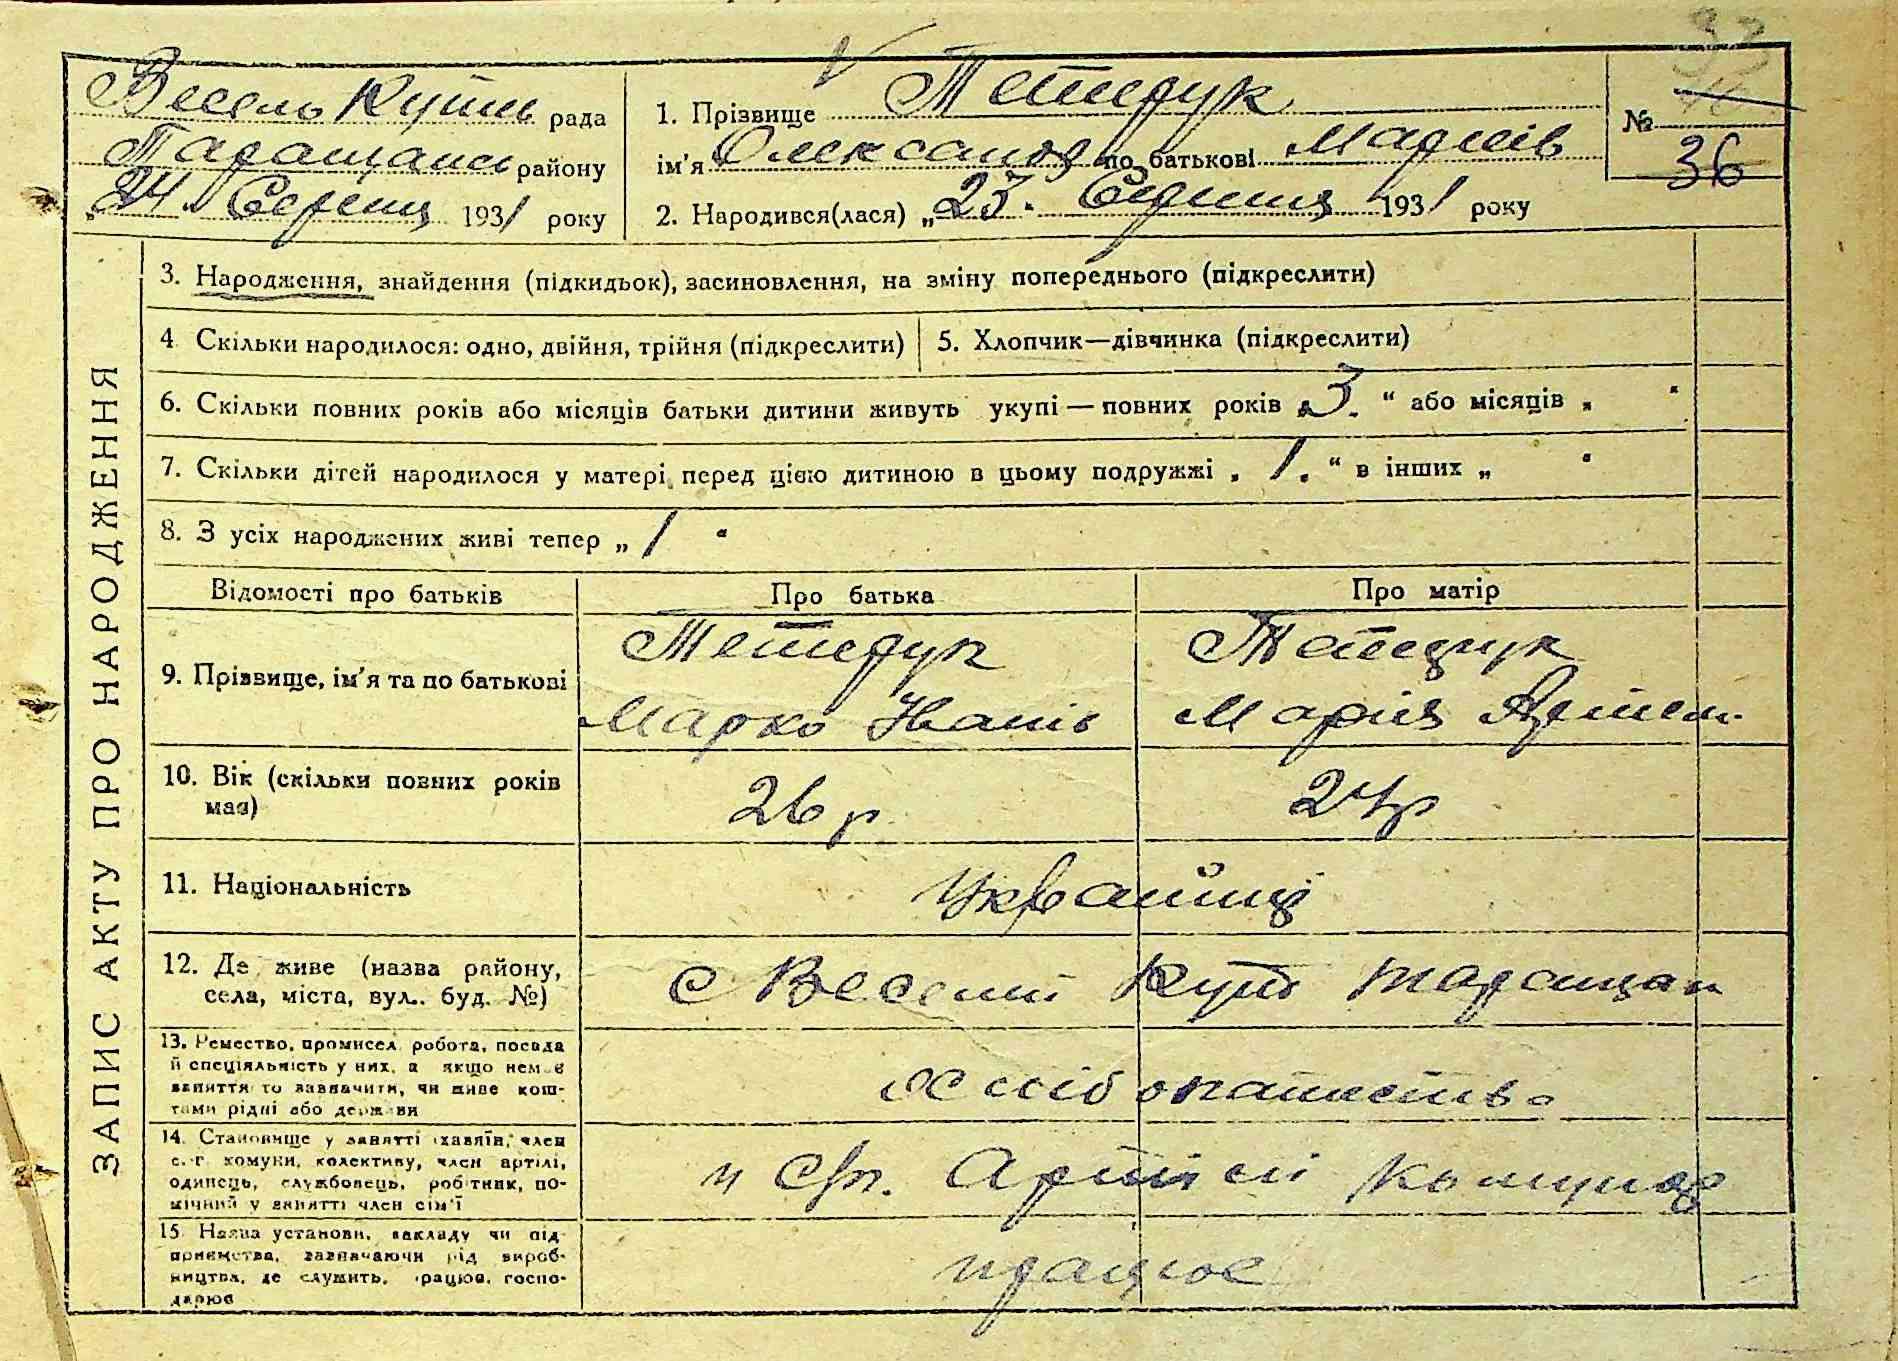 № 36
Весело Кутськ рада
Таращанськ району
„24. Серпня 1931 року
1. Прізвище Тетерук
ім'я Олександр по батькові Марків
2. Народився(лася) „23. Серпня 1931 року
ЗАПИС АКТУ ПРО НАРОДЖЕННЯ
3. Народження, знайдення (підкидьок), засиновлення, на зміну попереднього (підкреслити)
4. Скільки народилося: одно, двійня, трійня (підкреслити)
5. Хлопчик—дівчинка (підкреслити)
6. Скільки повних років або місяців батьки дитини живуть укупі — повних років „3.“ або місяців „ “
7. Скільки дітей народилося у матері перед цією дитиною в цьому подружжі „1.“ в інших „ “
8. З усіх народжених живі тепер „1“
Відомості про батьків
Про батька
Про матір
9. Прізвище, ім'я та по батькові
Тетерук
Марко Іванів
Тетерук
Марія
10. Вік (скільки повних років має)
26 р
24 р
11. Національність
Українці
12. Де живе (назва району, села, міста, вул.. буд. №)
с Веселий Кут Таращан
13. Ремество, промисел, робота, посада й спеціяльність у них, а якщо нема заняття то зазначити, чи живе коштами рідні або держави
Хліборобство
14. Становище у занятті (хазяїн, член с.-г. комуни, колективу, член артілі, одинець, службовець, робітник, помічний у занятті член сім'ї
Артілі
15. Назва установи, закладу чи підприємства, зазначаючи рід виробництва, де служить, працює, господарює
працює